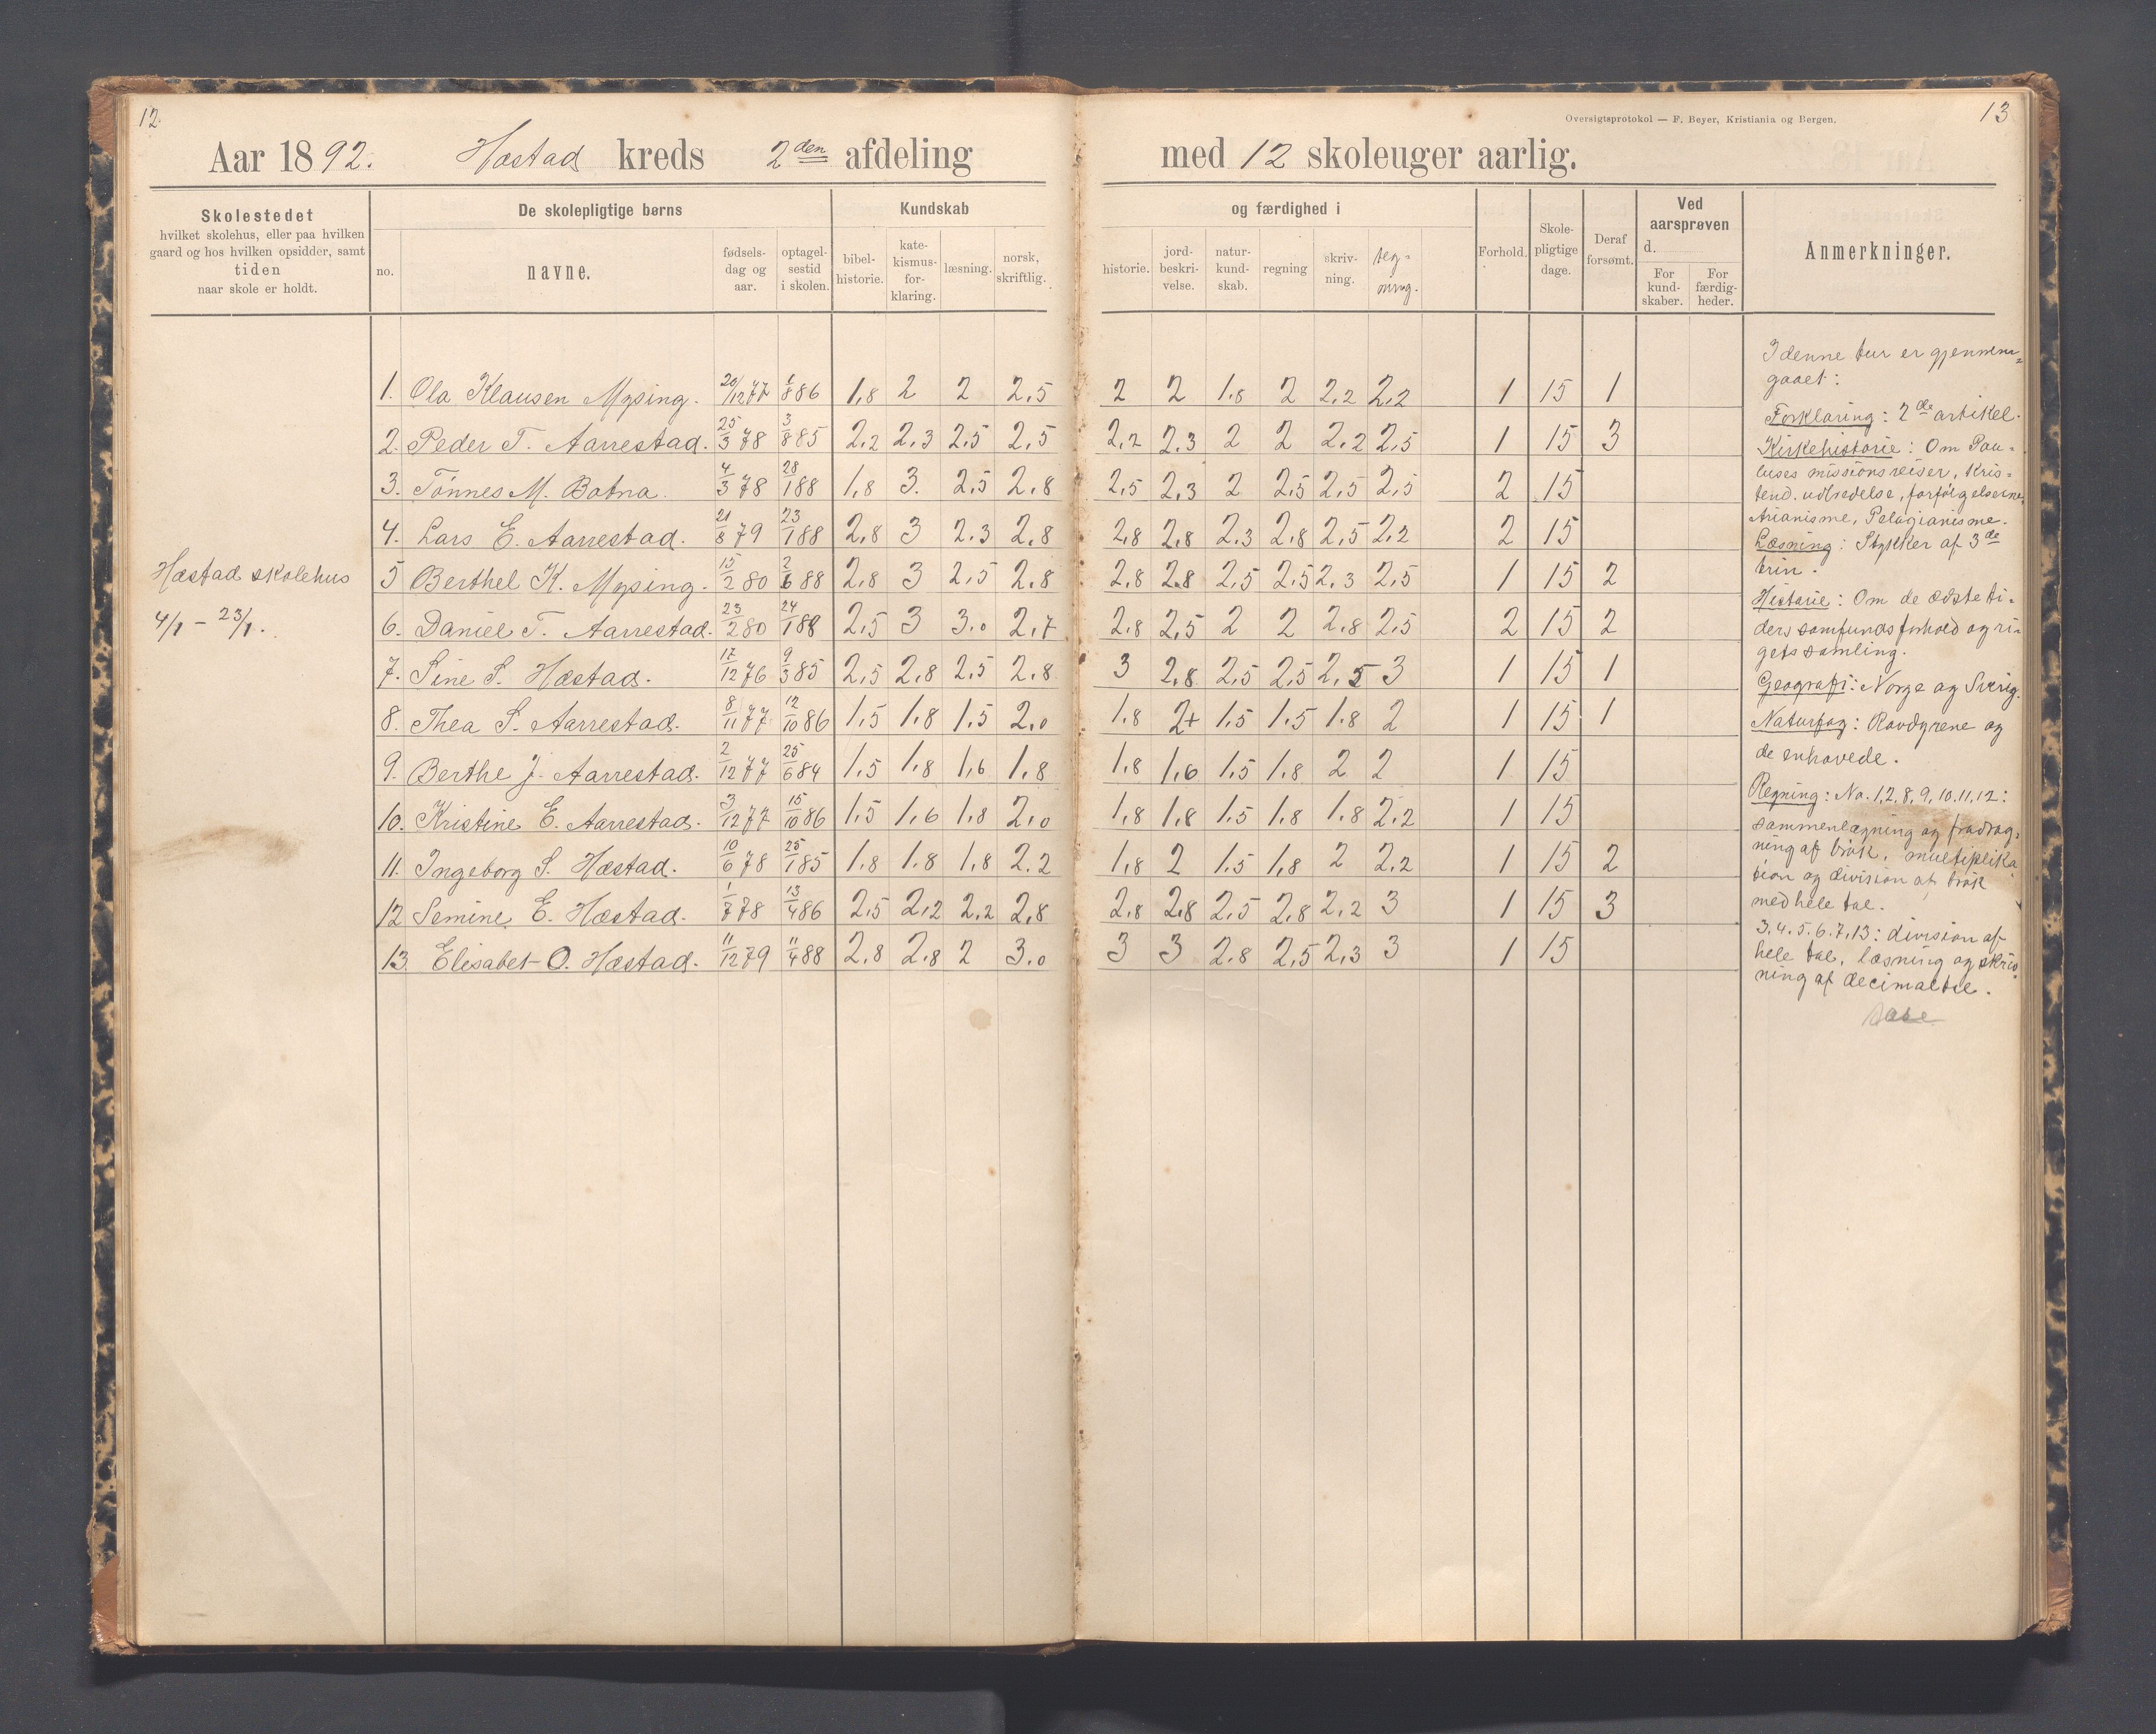 12.
Aar 1892. Hæstad kreds 2den afdeling
Skolestedet
hvilket skolehus, eller paa hvilken
gaard og hos hvilken opsidder, samt
tiden
naar skole er holdt.
De skolepligtige børns
no. navne. fødsels-dag og aar. optagel-sestid i skolen.
Kundskab
bibel-historie. kate-kismus-for-klaring. læsning. norsk, skriftlig.
Hæstad skolehus
4/1 - 23/1.
1. Ola Klausen Mysing. 20/12 77 1/8 86 1,8 2 2 2,5
2. Peder T. Aarrestad. 25/3 78 3/8 85 2,2 2,3 2,5 2,5
3. Tönnes M. Botna. 4/3 78 28/1 88 1,8 3. 2,5 2,8
4. Lars E. Aarrestad. 21/8 79 23/1 88 2,8 3 2,3 2,8
5 Berthel K. Mysing. 15/2 80 2/6 88 2,8 3 2,5 2,8
6. Daniel T. Aarrestad. 23/2 80 24/1 88 2,5 3 3.0 2,7
7. Sine S. Hæstad. 17/12 76 9/3 85 2,5 2,8 2,5 2,8
8. Thea S. Aarrestad. 8/11 77 12/10 86 1,5 1,8 1,5 2,0
9. Berthe J. Aarrestad. 2/12 77 25/6 84 1,5 1,8 1,6 1,8
10. Kristine E. Aarrestad. 3/12 77 15/10 86 1,5 1,6 1,8 2,0
11. Ingeborg S. Hæstad. 10/6 78 25/1 85 1,8 1,8 1,8 2.2
12 Semine E. Hæstad. 1/7 78 13/4 86 2,5 2,2 2,2 2,8
13. Elisabet O. Hæstad. 11/12 79 11/4 88 2,8 2,8 2 3.0
Oversigtsprotokol — F. Beyer, Kristiania og Bergen.
13
med 12 skoleuger aarlig.
og færdighed i
historie. jord-beskri-velse. natur-kund-skab. regning skriv-ning. teg-ning.
Forhold. Skole-pligtige dage. Deraf forsømt.
Ved aarsprøven
d.
For kund-skaber. For færdig-heder.
Anmerkninger.
2 2 1,8 2 2,2 2,2 1 15 1
2,2 2,3 2 2 2,2 2,5 1 15 3
2,5 2,3 2 2,5 2,5 2,5 2 15
2,8 2,8 2,3 2,8 2,5 2,2 2 15
2,8 2,8 2,5 2,5 2,3 2,5 1 15 2
2,8 2,5 2 2 2,8 2,5 2 15 2
3 2,8 2,5 2,5 2,5 3 1 15 1
1,8 2+ 1,5 1,5 1,8 2 1 15 1
1,8 1,6 1,5 1,8 2 2 1 15
1,8 1,8 1,5 1,8 1,8 2,2 1 15
1,8 2 1,5 1,8 2 2,2 1 15 2
2,8 2,8 2,5 2,8 2,2 3 1 15 3
3 3 2,8 2,5 2,3 3 1 15
I denne tur er gjennem-
gaaet:
Forklaring: 2de artikel.
Kirkehistorie: Om Pau-
luses missionsreiser, kris-
tend. udbredelse, forfølgelserne
Arianisme, Pelagianisme.
Læsning: Stykker af 3de
trin.
Historie: Om de ældste ti-
ders samfundsforhold og ri-
gets samling.
Geografi: Norge og Sverig.
Naturfag: Rovdyrene og
de enhovede.
Regning: No. 1,2,8,9,10,11,12:
sammenlægning og fradrag-
ning af brøk, multiplika
sion og division af brøk
med hele tal.
3.4.5.6.7.13: division af
hele tal, læsning og skriv
ning af decimaltal.